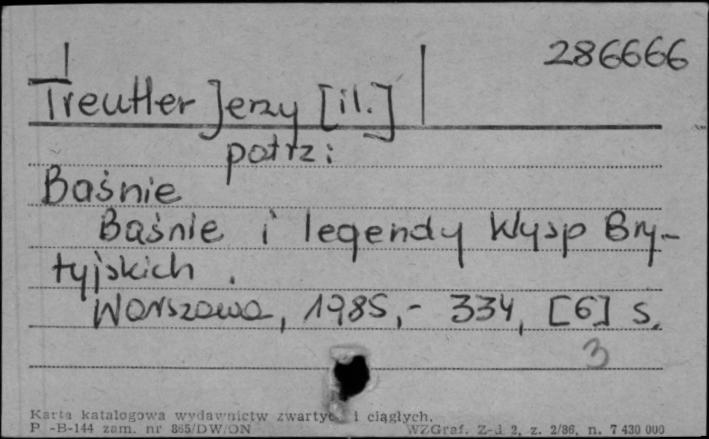 286666
Treutler Jerzy [il.]
patrz:
Baśnie
Baśnie i legendy Wysp Bry-
tyjskich.
Warszawa, 1985,- 334, [6] s.
3
Karta katalogowa wydawnictw zwartych i ciągłych.
P -B-144 zam. nr 865/DW/ON WZGraf. Z-d 2, z. 2/86, n. 7 430 000